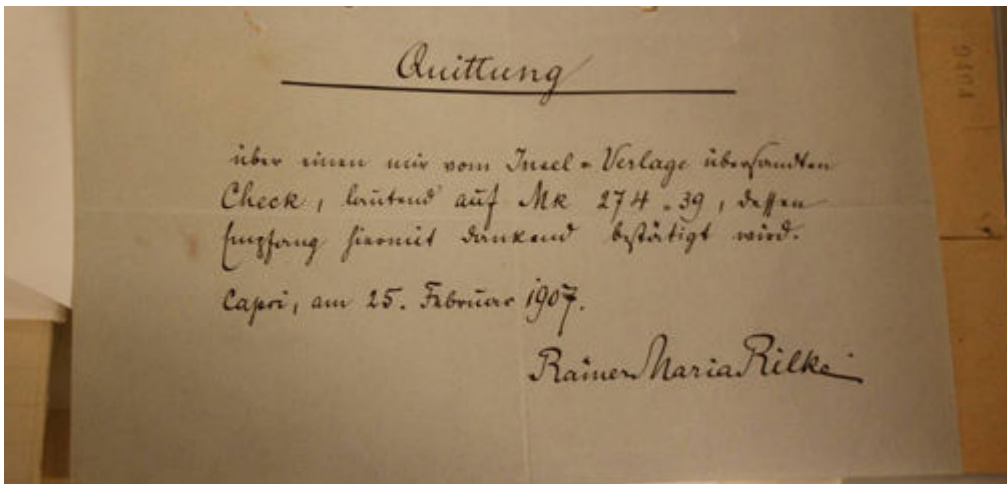 Quittung
über einen mir vom Insel-Verlage übersandten
Check, lautend auf Mk 274.39, dessen
Empfang hiermit dankend bestätigt wird.
Capri, am 25. Februar 1907.
Rainer Maria Rilke